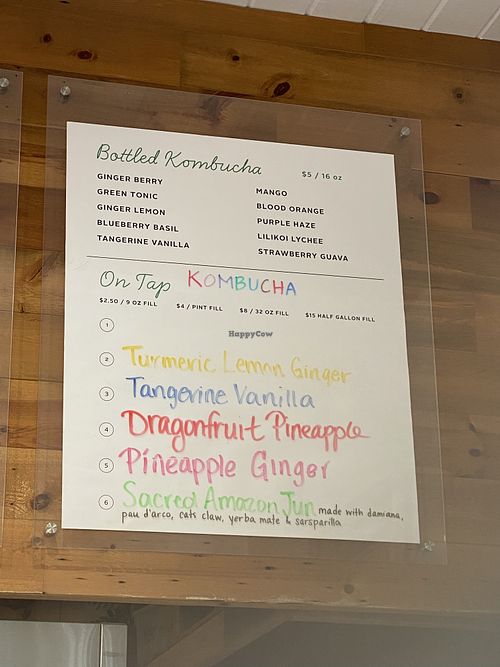 Bottled Kombucha $5 / 16 oz
GINGER BERRY
GREEN TONIC
GINGER LEMON
BLUEBERRY BASIL
TANGERINE VANILLA
MANGO
BLOOD ORANGE
PURPLE HAZE
LILIKOI LYCHEE
STRAWBERRY GUAVA
On Tap KOMBUCHA
$2.50 / 9 OZ FILL $4 / PINT FILL $8 / 32 OZ FILL $15 HALF GALLON FILL
1
HappyCow
2 Turmeric Lemon Ginger
3 Tangerine Vanilla
4 Dragonfruit Pineapple
5 Pineapple Ginger
6 Sacred Amazon Jun made with damiana,
pau d'arco, cats claw, yerba mate & sarsparilla